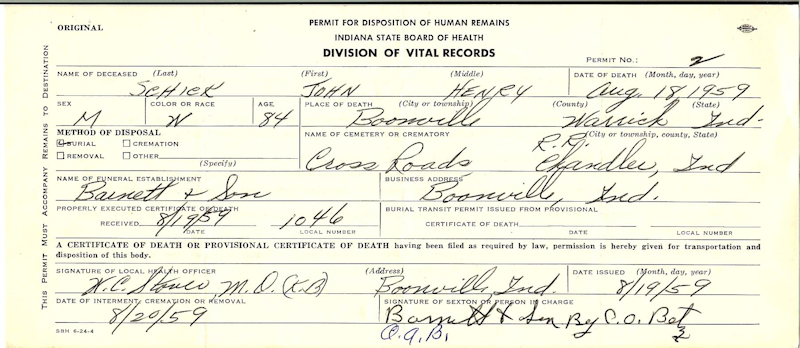 ORIGINAL
PERMIT FOR DISPOSITION OF HUMAN REMAINS
INDIANA STATE BOARD OF HEALTH
DIVISION OF VITAL RECORDS
PERMIT NO.: 2
THIS PERMIT MUST ACCOMPANY REMAINS TO DESTINATION
NAME OF DECEASED (Last) (First) (Middle) DATE OF DEATH (Month, day, year)
SCHICK JOHN HENRY Aug. 18 1959
SEX COLOR OR RACE AGE PLACE OF DEATH (City or township) (County) (State)
M W 84 Boonville Warrick Ind.
METHOD OF DISPOSAL NAME OF CEMETERY OR CREMATORY (City or township, county, State)
BURIAL CREMATION R.R.
REMOVAL OTHER Cross Roads Chandler, Ind
(Specify)
NAME OF FUNERAL ESTABLISHMENT BUSINESS ADDRESS
Barnett & Son Boonville, Ind.
PROPERLY EXECUTED CERTIFICATE OF DEATH BURIAL TRANSIT PERMIT ISSUED FROM PROVISIONAL
RECEIVED 8/19/59 1046 CERTIFICATE OF DEATH
DATE LOCAL NUMBER DATE LOCAL NUMBER
A CERTIFICATE OF DEATH OR PROVISIONAL CERTIFICATE OF DEATH having been filed as required by law, permission is hereby given for transportation and
disposition of this body.
SIGNATURE OF LOCAL HEALTH OFFICER (Address) DATE ISSUED (Month, day, year)
M.D. Boonville, Ind. 8/19/59
DATE OF INTERMENT, CREMATION OR REMOVAL SIGNATURE OF SEXTON OR PERSON IN CHARGE
8/20/59 Barnett & Son By C.O.
SBH 6-24-4